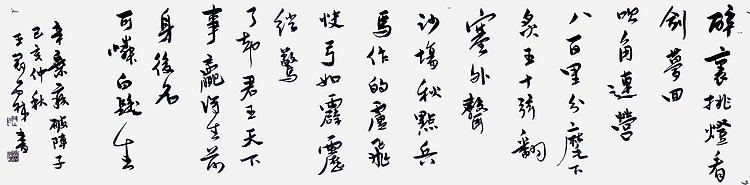 醉裏挑燈看
劍夢回
吹角連營
八百里分麾下
炙五十弦翻
塞外聲
沙場秋點兵
馬作的盧飛
快弓如霹靂
弦驚
了却君王天下
事贏得生前
身後名
可憐白髮生
辛棄疾破陣子
己亥仲秋
書